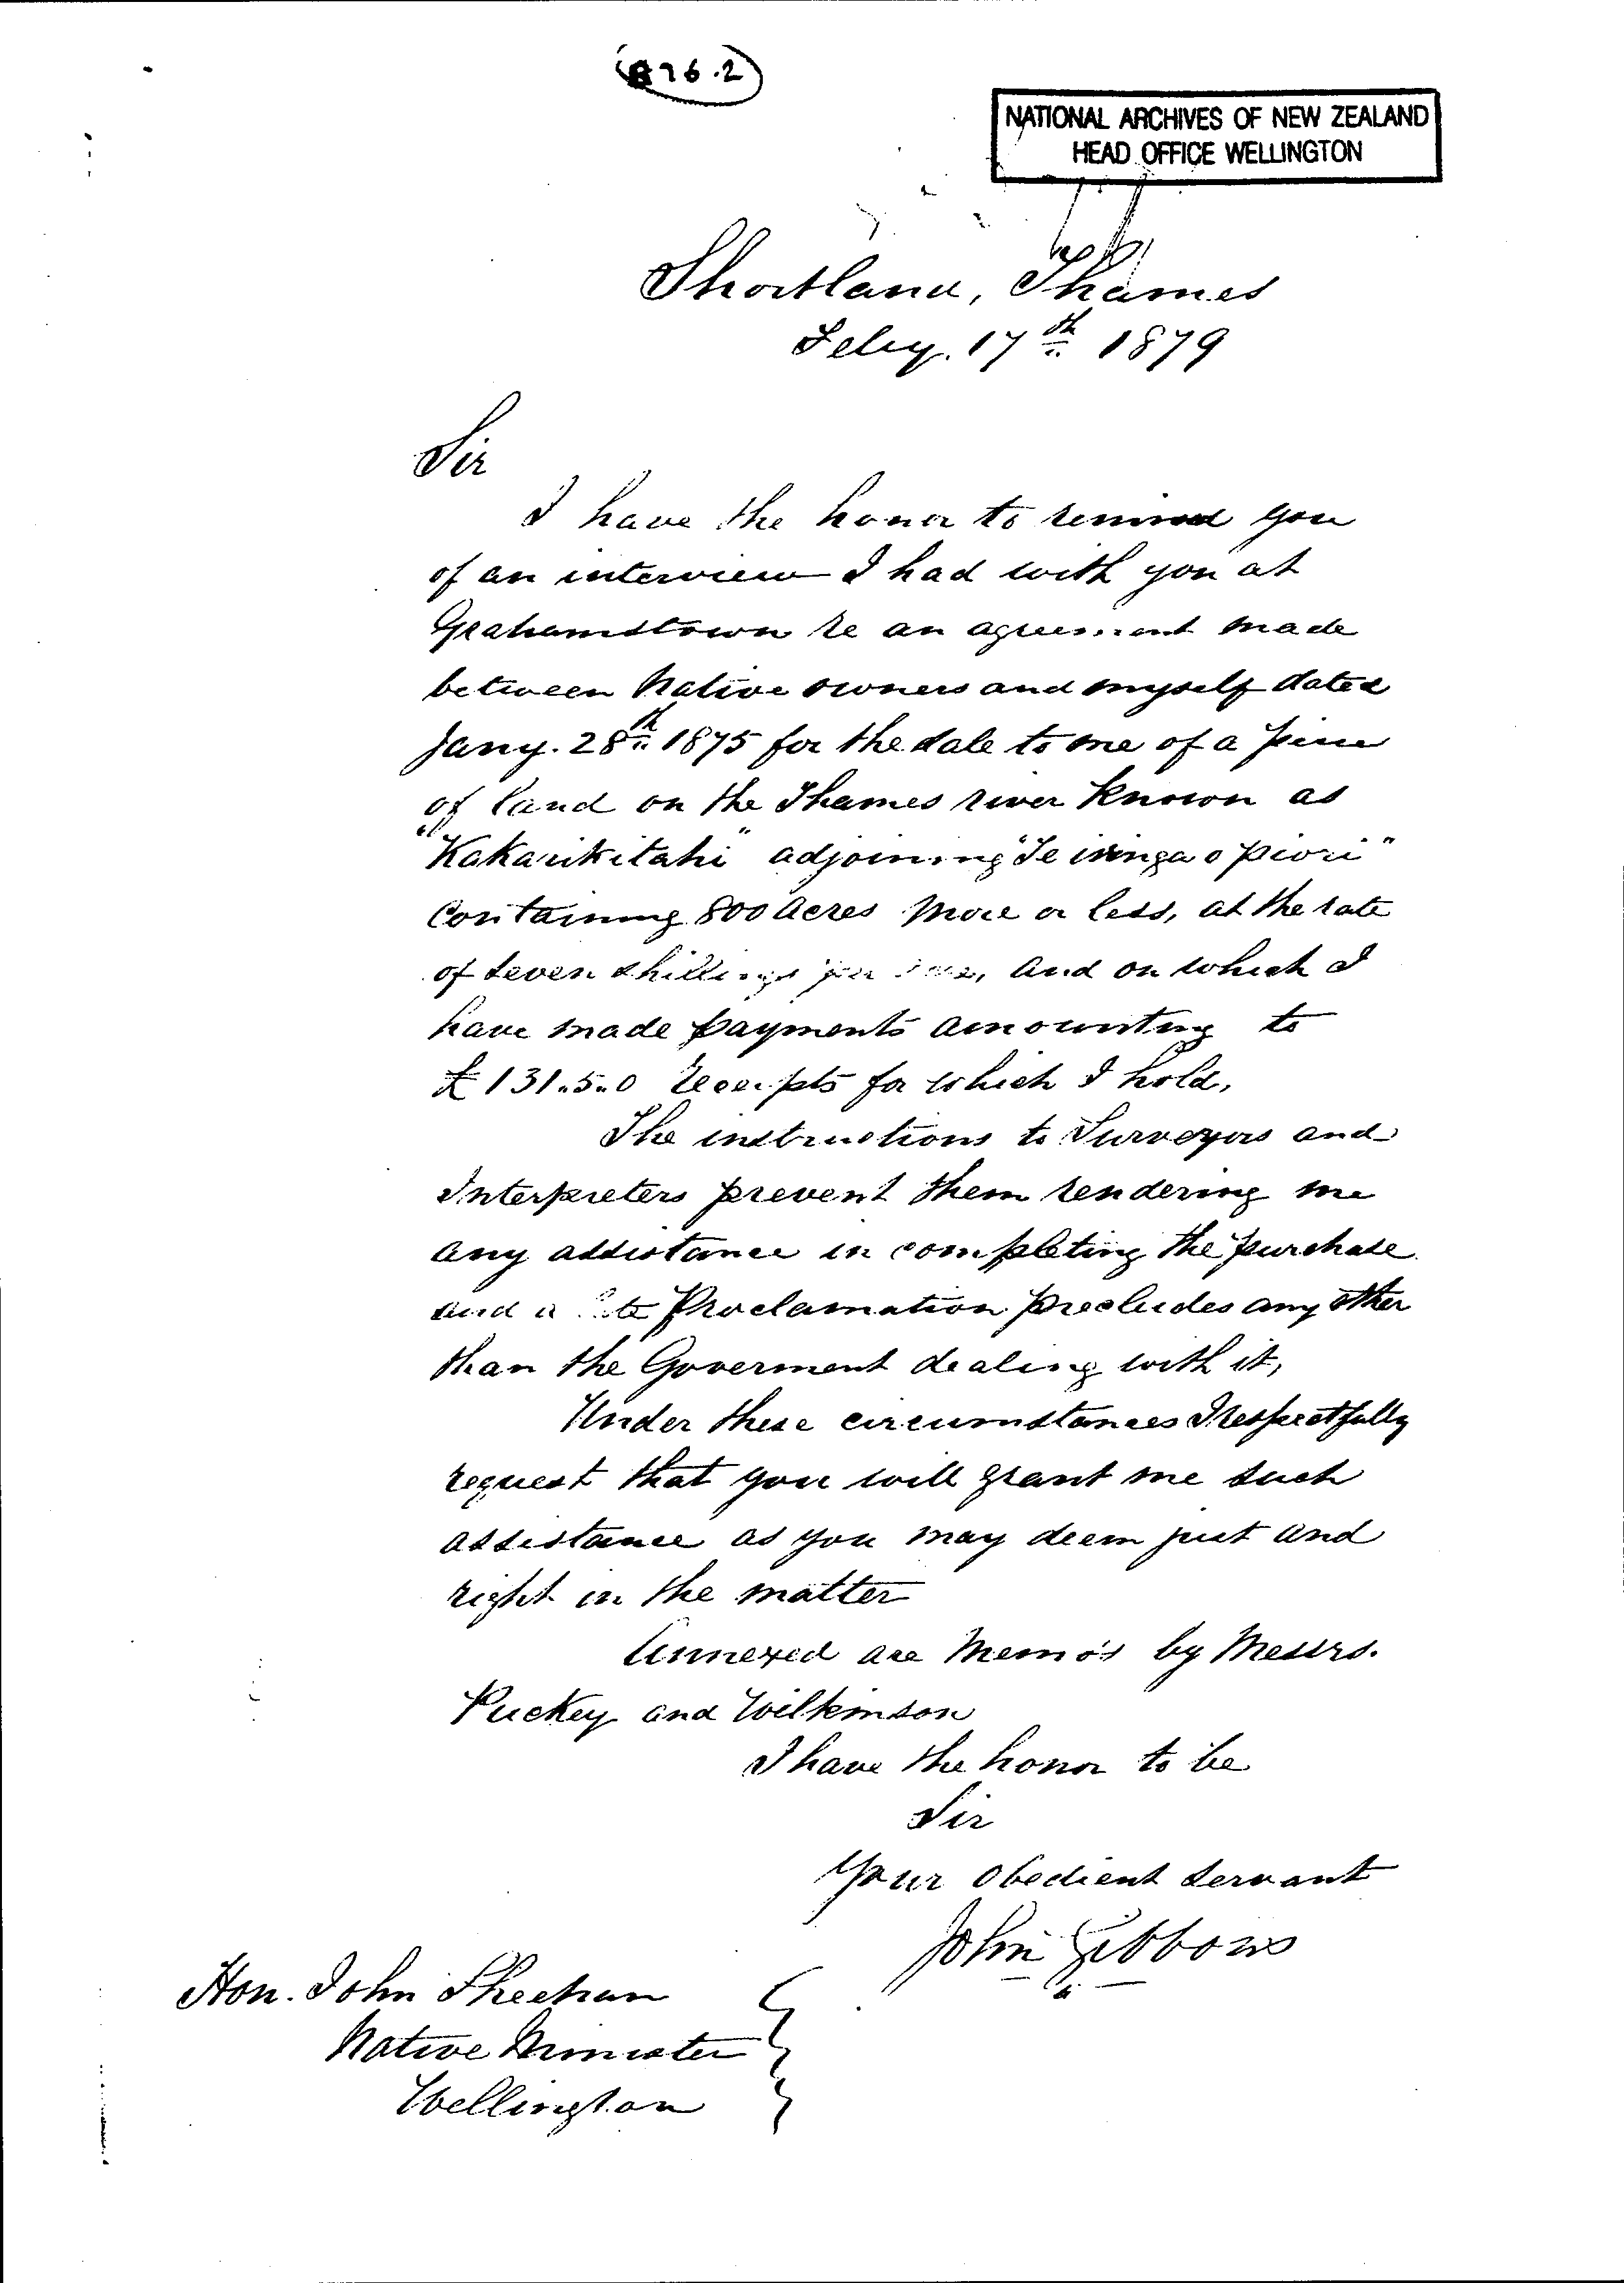 876.2
NATIONAL ARCHIVES OF NEW ZEALAND
HEAD OFFICE WELLINGTON
Shortland, Thames
Feby. 17th 1879
Sir
I have the honor to remind you
of an interview I had with you at
Grahamstown re an agreement made
between Native owners and myself dated
Jany. 28th 1875 for the sale to me of a piece
of land on the Thames river known as
"Kakarikitahi" adjoining "Te iringa o piori"
Containing 800 Acres more or less, at the rate
of seven shillings per acre, and on which I
have made payments amounting to
£131.5.0 receipts for which I hold,
The instructions to Surveyors and
Interpreters prevent them rendering me
any assistance in completing the purchase
and a late Proclamation precludes any other
than the Goverment dealing with it,
Under these circumstances I respectfully
request that you will grant me such
assistance as you may deem just and
right in the matter
Annexed are Memo's by Messrs.
Puckey and Wilkinson
I have the honor to be
Sir
Your Obedient servant
John Gibbons
Hon. John Sheehan
Native Minister
Wellington